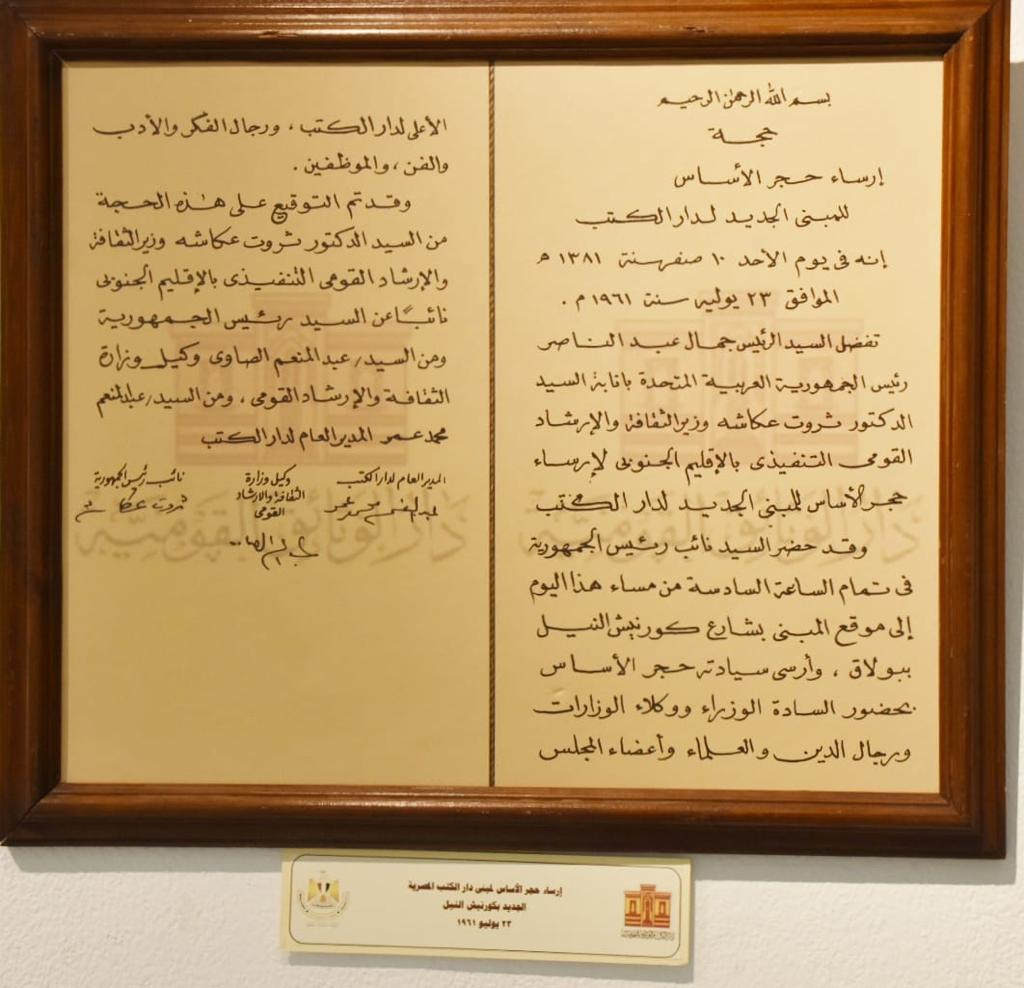 بسم الله الرحمن الرحيم
حجة
إرساء حجر الأساس
للمبنى الجديد لدار الكتب
إنه فى يوم الأحد ١٠ صفر سنة ١٣٨١ هـ
الموافق ٢٣ يوليه سنة ١٩٦١ م .
تفضل السيد الرئيس جمال عبد الناصر
رئيس الجمهورية العربية المتحدة بانابة السيد
الدكتور ثروت عكاشه وزير الثقافة والإرشاد
القومى التنفيذى بالإقليم الجنوبى لإرساء
حجر الأساس للمبنى الجديد لدار الكتب
وقد حضر السيد نائب رئيس الجمهورية
فى تمام الساعة السادسة من مساء هذا اليوم
إلى موقع المبنى بشارع كورنيش النيل
ببولاق ، وأرسى سيادته حجر الأساس
بحضور السادة الوزراء ووكلاء الوزارات
ورجال الدين والعلماء وأعضاء المجلس
الأعلى لدار الكتب ، ورجال الفكر والأدب
والفن ، والموظفين .
وقد تم التوقيع على هذه الحجة
من السيد الدكتور ثروت عكاشه وزير الثقافة
والإرشاد القومى التنفيذى بالإقليم الجنوبى
نائبًا عن السيد رئيس الجمهورية
ومن السيد/ عبد المنعم الصاوى وكيل وزارة
الثقافة والإرشاد القومى ، ومن السيد/ عبد المنعم
محمد عمر المدير العام لدار الكتب
المدير العام لدار الكتب
عبد المنعم محمد عمر
وكيل وزارة
الثقافة والارشاد
القومى
نائب رئيس الجمهورية
ثروت عكاشه
دار الوثائق القومية
دار الوثائق القومية
إرساء حجر الأساس لمبنى دار الكتب المصرية
الجديد بكورنيش النيل
٢٣ يوليو ١٩٦١